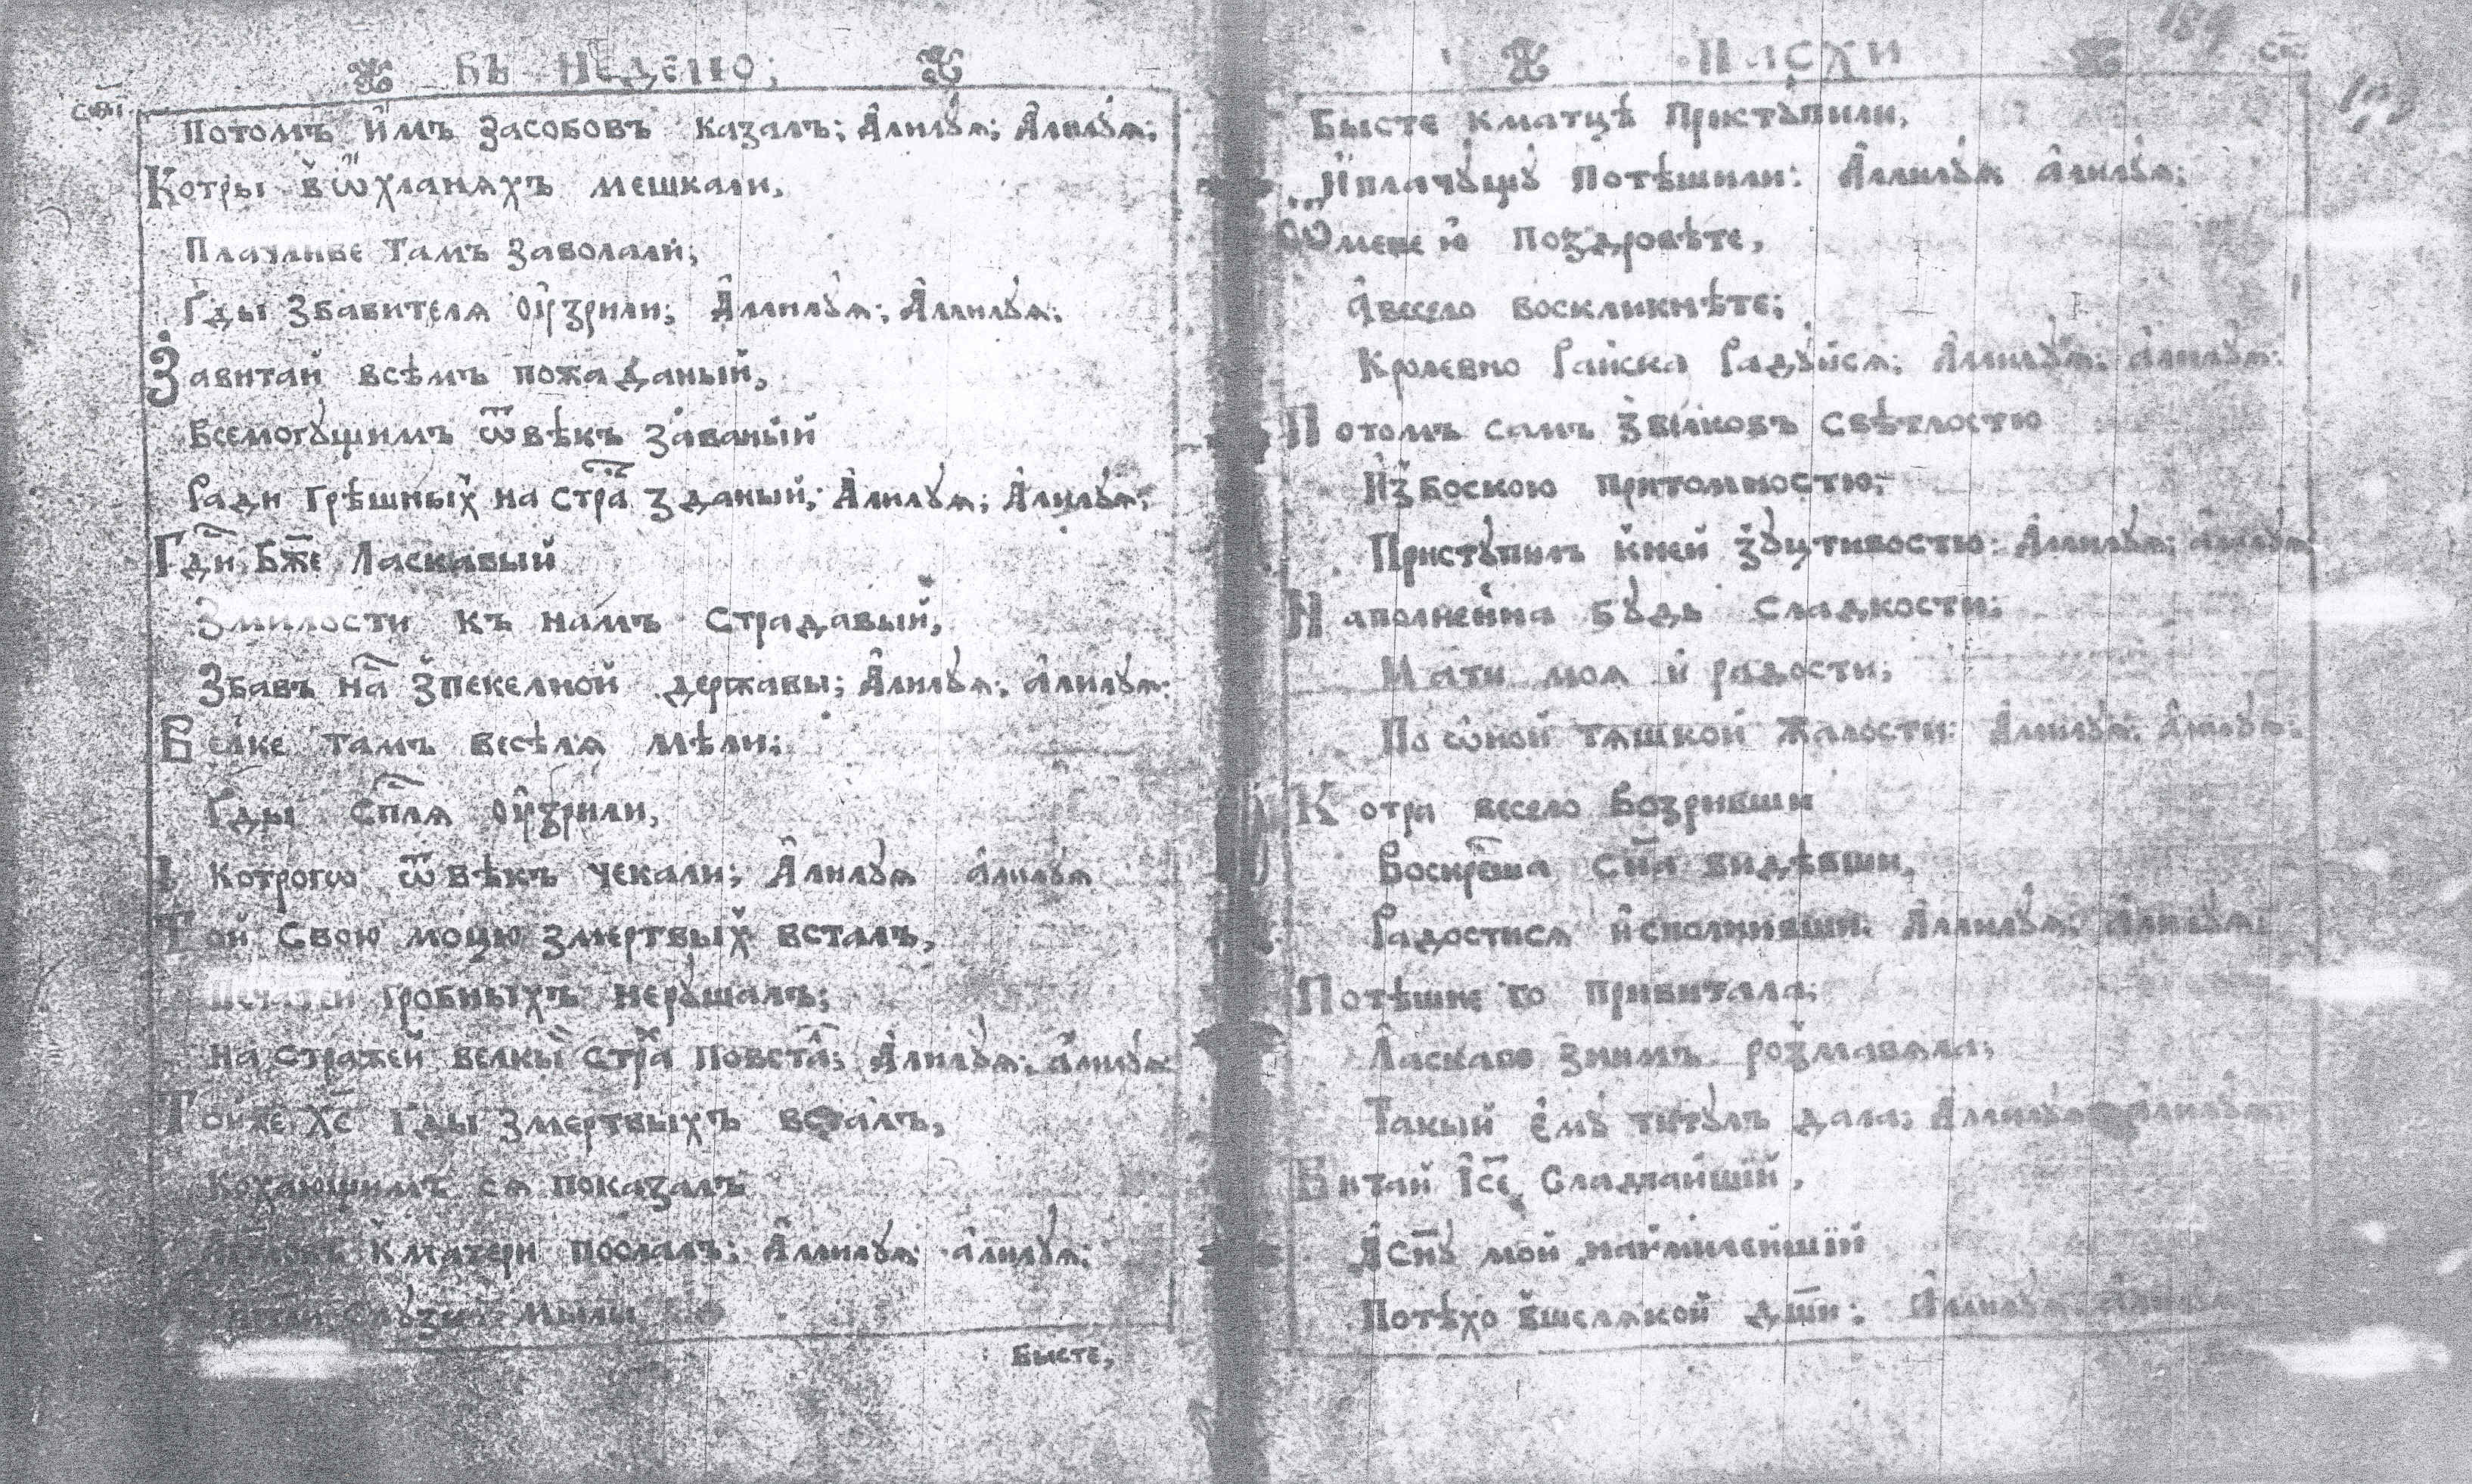 Въ Недѣлю;
Потомъ и҆мъ засобовъ казалъ; А҆лилꙋѧ; А҆лилꙋѧ;
Котры в ѡ҆хланѧхъ мешкали,
Плачливе тамъ заволали;
Гды збавителѧ ᲂу҆зрили; А҆ллилꙋѧ; А҆ллилꙋѧ;
Завитай всѣмъ пожаданый,
Всемогꙋщимъ ѿ вѣкъ званый
Ради грѣшныхъ на стра зданый; А҆лилꙋѧ; А҆лилꙋѧ;
Гд҃и Бж҃е Ласкавый
Змилости къ намъ страдавый,
Збавъ на зпекелной державы; А҆лилꙋѧ; а҆лилꙋѧ;
Велке тамъ весѣлѧ мѣли;
Гды Сп҃лѧ ᲂу҆зрили,
Которогѡ ѿ вѣкъ чекали; А҆лилꙋѧ а҆лилꙋѧ
Той свою моцю змертвыхъ всталъ,
Печатей гробныхъ нерꙋшалъ;
На стражей велкы стра повста; А҆лилꙋѧ; а҆лилꙋѧ
Тойже Хс҃ Гды змертвыхъ всталъ,
Кохающимъ сѧ показалъ
к матери послалъ; А҆ллилꙋѧ; а҆лилꙋѧ;
Мылы
Бысте,
Пасхи
189
Бысте к матцѣ Пристꙋпили,
И҆ плачꙋщꙋ Потѣшили: А҆ллилꙋѧ а҆лилꙋѧ;
Ѿ мене ю҆ поздровѣте,
А҆ весело воскликнѣте;
Кролевно Райска Радꙋйсѧ; А҆ллилꙋѧ; а҆лилꙋѧ;
Потомъ самъ з велковъ свѣтлостю
И҆ з боскою притомностю;
Пристꙋпилъ к ней з ꙋцтивостю: А҆ллилꙋѧ; а҆лилꙋѧ
Наполненна бꙋдь сладкости;
Мати моѧ и҆ радости;
По ѡ҆ной тѧшкой жалости: А҆лилꙋѧ; А҆лилꙋѧ;
Котри весело возривши
Воскре҃ша Сн҃а видѣвши,
Радостисѧ и҆сполнивши. А҆ллилꙋѧ; А҆лилꙋѧ;
Потѣшне го привитала;
Ласкаве з нимъ розмавѧла;
Такый е҆мꙋ титꙋлъ дала; А҆ллилꙋѧ а҆лилꙋѧ
Витай І҆се҃ Сладчайшій,
А҆ Сн҃ꙋ мой наймилейшій
Потѣхо вшелѧкой дш҃и: А҆ллилꙋѧ